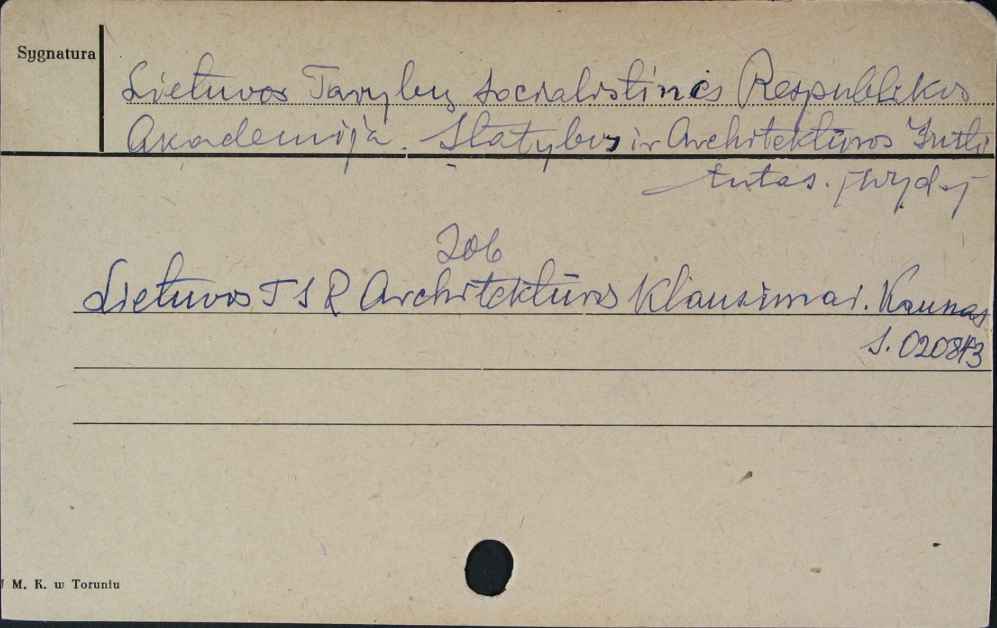 Sygnatura
Lietuvos Tarybų Socialistinės Respublikos
Akademija. Statybos ir Architektūros Insti
tutas. [wyd.]
Zob
Lietuvos TSR Architektūros Klausimai. Kaunas
S. 020843
U M. K. w Toruniu